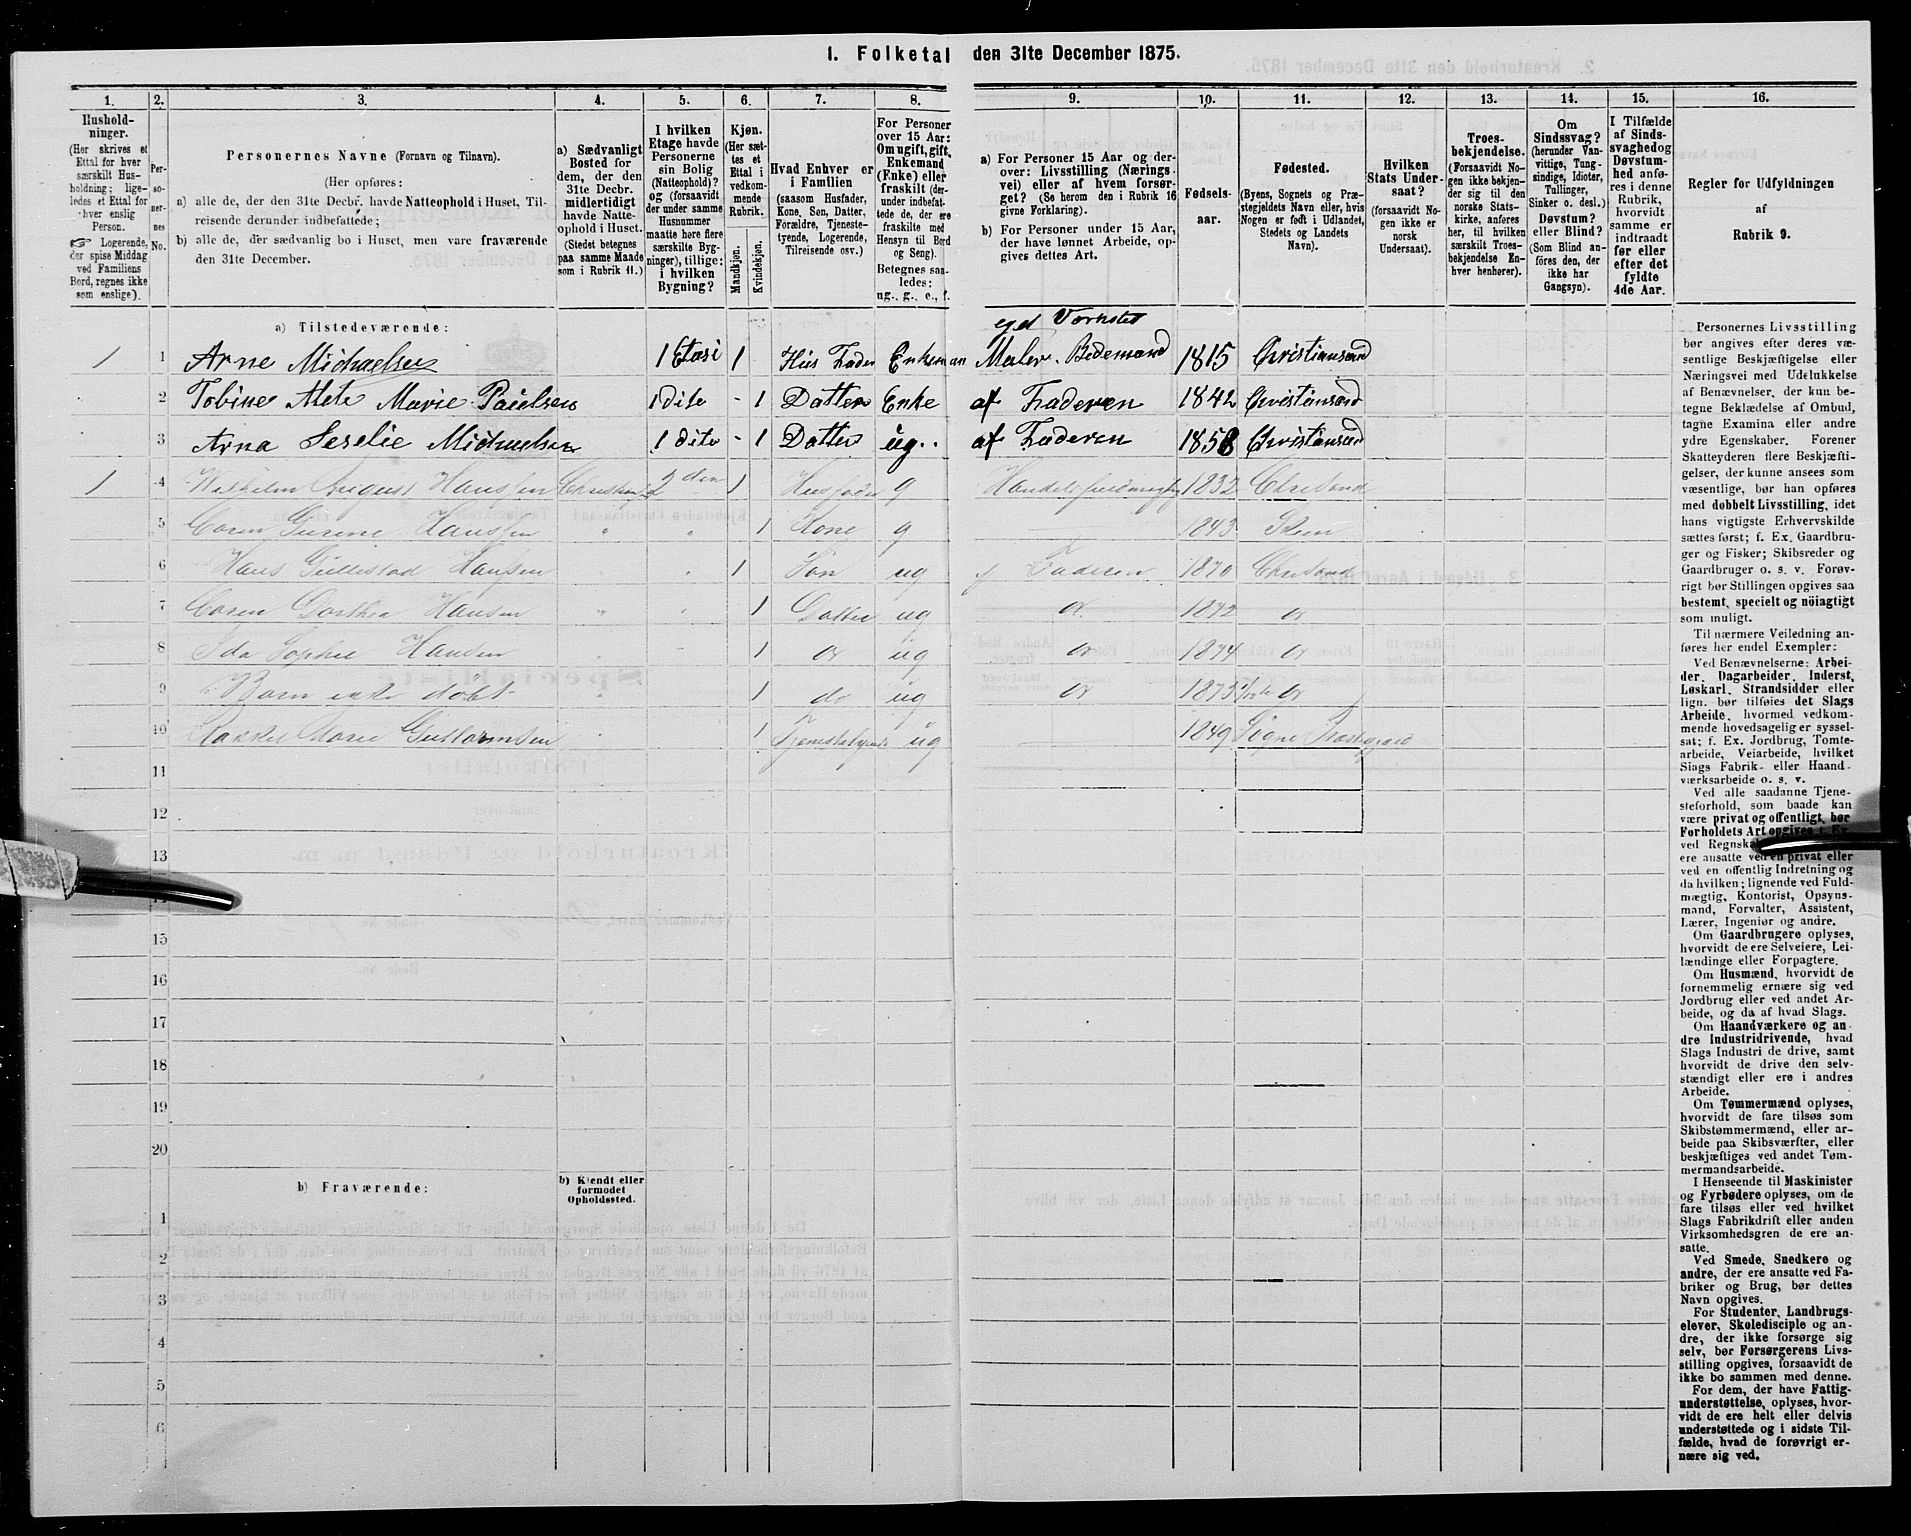 1. Folketal den 31te December 1875.
1. 2. 3. 4. 5. 6. 7. 8. 9. 10. 11. 12. 13. 14. 15. 16.
Hushold-
ninger.
(Her skrives et
Ettal for hver
særskilt Hus-
holdning; lige-
ledes et Ettal for
hver enslig
Person.
☞ Logerende,
der spise Middag
ved Familiens
Bord, regnes ikke
som enslige).
Per-
so-
ner-
nes
No.
Personernes Navne (Fornavn og Tilnavn).
(Her opføres:
a) alle de, der den 31te Decbr. havde Natteophold i Huset, Til-
reisende derunder indbefattede;
b) alle de, der sædvanlig bo i Huset, men vare fraværende
den 31te December.
a) Sædvanligt
Bosted for
dem, der den
31te Decbr.
midlertidigt
havde Natte-
ophold i Huset.
(Stedet betegnes
paa samme Maade
som i Rubrik 11.)
I hvilken
Etage havde
Personerne
sin Bolig
(Natteophold)?
og (forsaavidt
der under samme
Husnummer
maatte høre flere
særskilte Byg-
ninger), tillige:
i hvilken
Bygning?
Kjøn.
(Her sæt-
tes et
Ettal i
vedkom-
mende
Rubrik.
Mandkjøn.
Kvindekjøn.
Hvad Enhver er
i Familien
(saasom Husfader,
Kone, Søn, Datter,
Forældre, Tjeneste-
tyende, Logerende,
Tilreisende osv.)
For Personer
over 15 Aar:
Om ugift, gift,
Enkemand
(Enke) eller
fraskilt (der-
under indbefat-
tede de, der ere
fraskilte med
Hensyn til Bord
og Seng).
Betegnes saa-
ledes:
ug., g., e., f.
a) For Personer 15 Aar og der-
over: Livsstilling (Nærings-
vei) eller af hvem forsør-
get? (Se herom den i Rubrik 16
givne Forklaring).
b) For Personer under 15 Aar,
der have lønnet Arbeide, op-
gives dettes Art.
Fødsels-
aar.
Fødested.
(Byens, Sognets og Præ-
stegjeldets Navn eller, hvis
Nogen er født i Udlandet,
Stedets og Landets
Navn).
Hvilken
Stats Under-
saat?
(forsaavidt No-
gen ikke er
norsk
Undersaat).
Troes-
bekjendelse.
(Forsaavidt No-
gen ikke bekjen-
der sig til den
norske Stats-
kirke, anføres
her, til hvilken
særskilt Troes-
bekjendelse En-
hver henhører).
Om
Sindssvag?
(herunder Van-
vittige, Tung-
sindige, Idioter,
Tullinger,
Sinker o. desl.)
Døvstum?
eller Blind?
(Som Blind an-
föres den, der
ikke har
Gangsyn).
I Tilfælde
af Sinds-
svaghed og
Døvstum-
hed anfø-
res i denne
Rubrik,
hvorvidt
samme er
indtraadt
før eller
efter det
fyldte
4de Aar.
Regler for Udfyldningen
af
Rubrik 9.
a) Tilstedeværende:
egd Værksted
1 1 Arne Michaelsen 1 Etasi 1 Hus Fader Enkeman Maler. Bedemand 1815 Christiansand
2 Tobine Alete Marie Paulsen 1 dito - 1 Datter Enke af Faderen 1842 Christiansand
3 Arna Michaelsen 1 dito - 1 Datter ug.. af Faderen 1858 Christiansand
1 4 Wilhelm August Hanssen 2den 1 Husfader g 1832 Chrsand
5 Hanssen " " 1 Kone g 1843 Skien
6 Hans Gullestad Hansen 1 Søn ug af Faderen 1870 Chrsand
7 Hansen " 1 Datter ug do 1872 do
8 Ida Sophie Hansen 1 do ug do 1874 do
9 Barn ikke døbt 1 do ug do 1875 do
10 Guttormsen 1 Tjenestetyende ug 1849 Søgne Præstegjæld
11
12
13
15
16
17
18
19
20
b) Fraværende:
b) Kjendt eller
formodet
Opholdssted.
1
2
3
4
5
6
Personernes Livsstilling
bør angives efter deres væ-
sentlige Beskjæftigelse eller
Næringsvei med Udelukkelse
af Benævnelser, der kun be-
tegne Beklædelse af Ombud,
tagne Examina eller andre
ydre Egenskaber. Forener
Skatteyderen flere Beskjæfti-
gelser, der kunne ansees som
væsentlige, bør han opføres
med dobbelt Livsstilling, idet
hans vigtigste Erhvervskilde
sættes først; f. Ex. Gaardbru-
ger og Fisker; Skibsreder og
Gaardbruger o. s. v. Forøv-
rigt bør Stillingen opgives saa
bestemt, specielt og nöiagtigt
som muligt.
Til nærmere Veiledning an-
føres her endel Exempler:
Ved Benævnelserne: Arbei-
der, Dagarbeider, Inderst,
Løskarl, Strandsidder eller
lign. bør tilføies det Slags
Arbeide, hvormed vedkom-
mende hovedsagelig er syssel-
sat; f. Ex. Jordbrug, Tomte-
arbeide, Veiarbeide, hvilket
Slags Fabrik- eller Haand-
værksarbeide o. s. v.
Ved alle saadanne Tjene-
steforhold, som baade kan
være privat og offentligt, bør
Forholdets Art opgives f. Ex.
ved
ere ansatte ved en privat eller
ved en offentlig Indretning og
da hvilken; lignende ved Fuld-
mægtig, Kontorist, Opsyns-
mand, Forvalter, Assistent,
Lærer, Ingeniør og andre.
Om Gaardbrugere oplyses,
hvorvidt de ere Selveiere, Lei-
lændinge eller Forpagtere.
Om Husmænd, hvorvidt de
fornemmelig ernære sig ved
Jordbrug eller ved andet Ar-
beide, og da af hvad Slags.
Om Haandværkere og an-
dre Industridrivende, hvad
Slags Industri de drive, samt
hvorvidt de drive den selv-
stændigt eller ere i andres
Arbeide.
Om Tømmermænd oplyses,
hvorvidt de fare tilsøs som
Skibstømmermænd, eller ar-
beide paa Skibsværfter, eller
beskjæftiges ved andet Tøm-
mermandsarbeide.
I Henseende til Maskinister
og Fyrbødere oplyses, om de
fare tilsøs eller ved hvilket
Slags Fabrikdrift eller anden
Virksomhedsgren de ere an-
satte.
Ved Smede, Snedkere og
andre, der ere ansatte ved Fa-
briker og Brug, bør dettes
Navn opgives.
For Studenter, Landbrugs-
elever, Skoledisciple og an-
dre, der ikke forsørge sig
selv, bør Forsørgerens Livs-
stilling opgives, forsaavidt de
ikke bo sammen med denne.
For dem, der have Fattig-
understøttelse, oplyses, hvor-
vidt de ere helt eller delvis
understøttede og i sidste Til-
fælde, hvad de forøvrigt er-
nære sig ved.